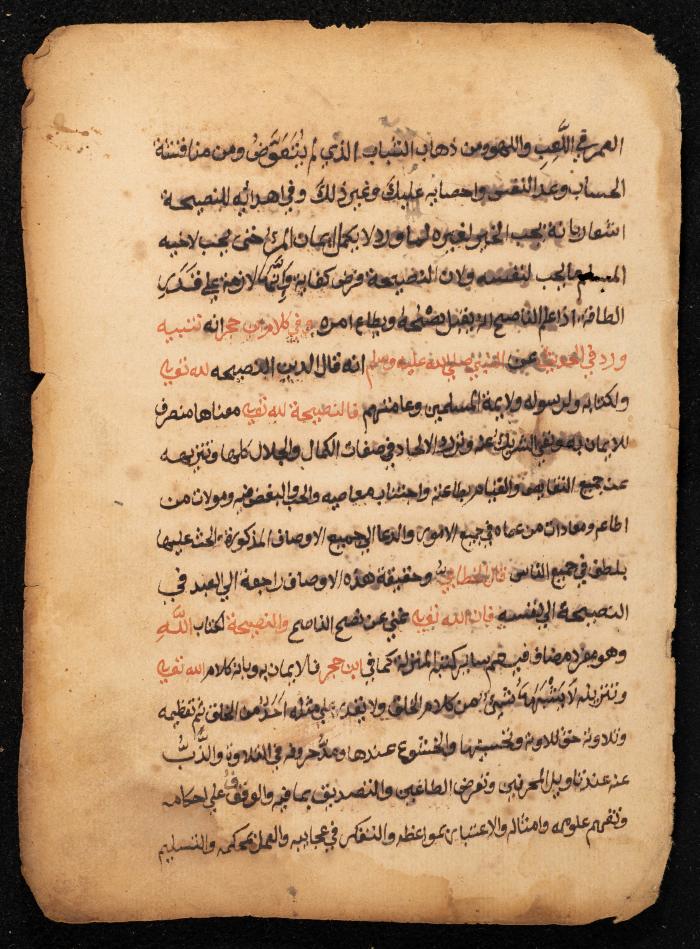 العمر في اللَّعِبِ واللهو ومن ذهاب الشباب الذي لم ينتقوض ومن منافشة
الحساب وعد النفس واحصايه عليك وغير ذلك وفي اهدائه للنصيحة
اشعار بانه يحب الخير لغيره لما ورد لا يكمل ايمان المرء حتى يحب لاخيه
المسلم ما يحب لنفسه ولان النصيحة فرض كفاية وَإنَّها لازمة على قَدْرِ
الطاقة اذا علم الناصح انه يقبل نصحه ويطاع امره في كلام ابن حجر انه تنبيه
ورد في الحديث عن النبي صلى الله عليه وسلم انه قال الدين النصيحه لله تعالى
ولكتابه ولرسوله ولايمة المسلمين وعامتهم فالنصيحة لله تعالى معناها منصرف
للايمان به ونفي الشريك عنه وترك الالحاد في صفات الكمال والجلال كلها وتنزيهه
عن جميع النقايص والقيام بطاعته واجتناب معاصيه والحب والبغض فيه ومولات من
اطاعه ومعادات من عصاه في جميع الامور والدعا الى جميع الاوصاف المذكورة والحث عليها
بلطف في جميع الناس قال الخطابي وحقيقة هذه الاوصاف راجعة الى العبد في
النصيحة الى نفسه فان الله تعالى غني عن نصح الناصح والنصيحة لكتاب اللَّه
وهو مفرد مضاف فيعم ساير كتبه المنزلة كما في ابن حجر فالايمان به وبانه كلام الله تعالى
وتنزيله لَا يَشْبَهُهَا شيئٌ من كلام الخلق ولا يقدر على مثله احَدٌ من الخلق ثم تعظيمه
وتلاوته حق تلاوته وتحسينها والخشوع عندها ومد حروفه في التلاوة والذَّبُّ
عنه عند تاويل المحرفين وتعرض الطاعنين والتصديق بما فيه والوقوف على احكامه
وتفهم علومه وامثاله والاعتبار بمواعظه والتفكر في عجايبه والعمل بمحكمه والتسليم